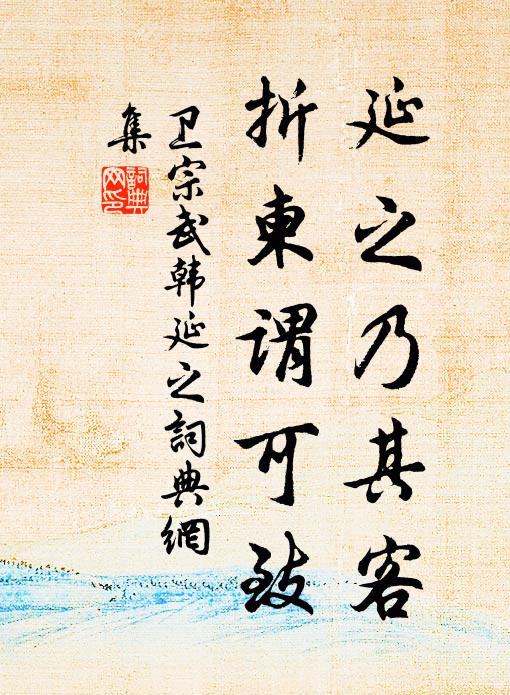 延之乃其客
折東谓可致
卫宗武韩延之詞典網
集
詞典網印